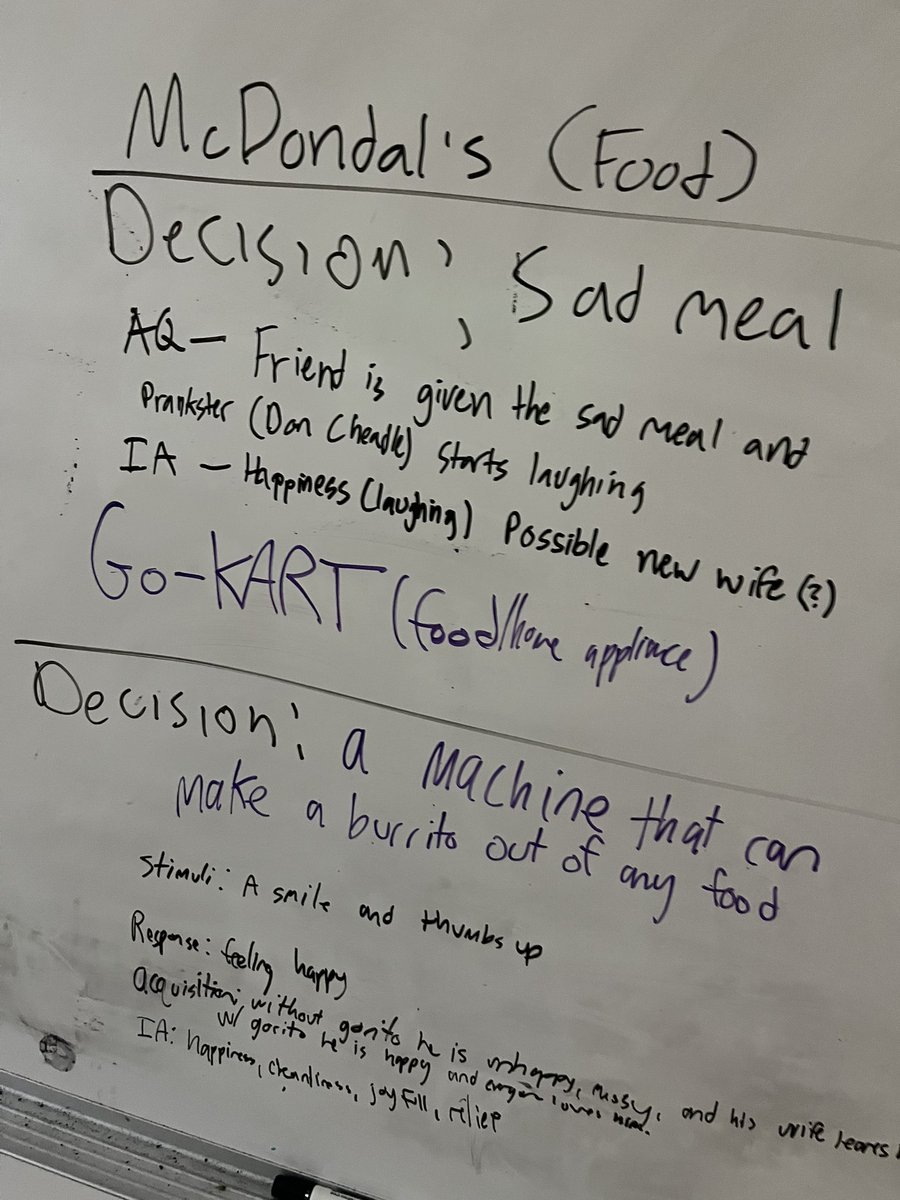 McDondal's (Food)
Decision: Sad meal
AQ - Friend is given the sad meal and
Prankster (Don Cheadle) starts laughing
IA - Happiness (laughing) Possible new wife (?)
Go-KART (food/home appliance)
Decision: a Machine that can
make a burrito out of any food
Stimuli: A smile and thumbs up
Response: feeling happy
Acquisition: without he is unhappy, messy, and his wife leaves
w/ he is happy and loves
IA: happiness, cleanliness, joyfull, relief